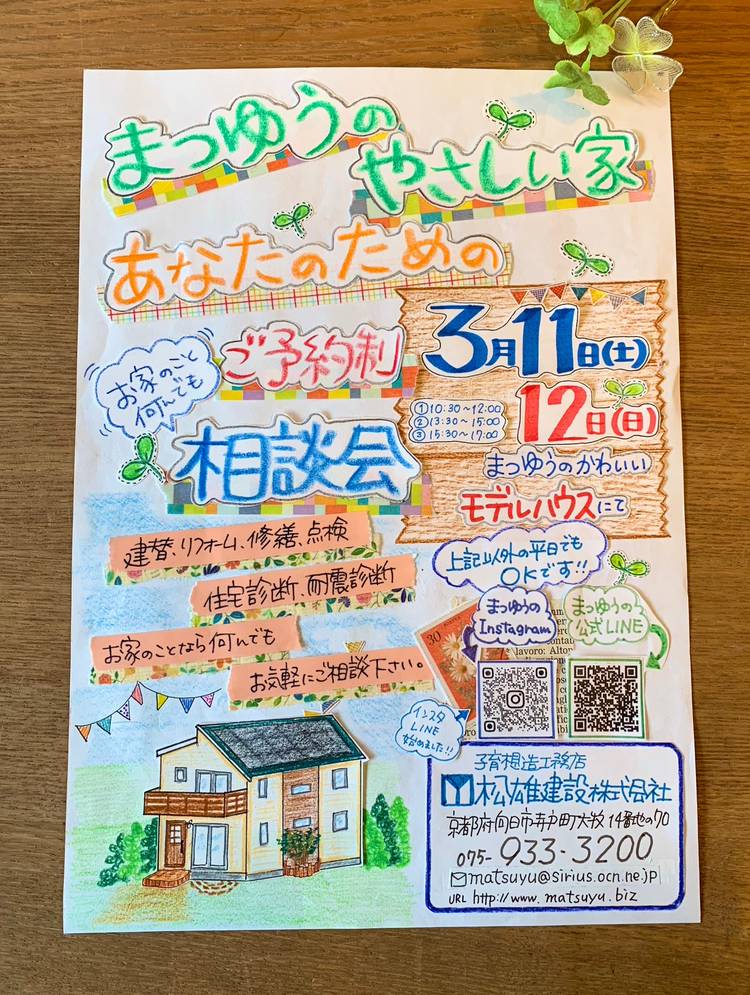 まつゆうの
やさしい家
あなたのための
お家のこと
何んでも
ご予約制
相談会
3月11日(土)
12日(日)
①10:30～12:00
②13:30～15:00
③15:30～17:00
まつゆうのかわいい
モデルハウスにて
上記以外の平日でも
OKです!!
建替、リフォーム、修繕、点検
住宅診断、耐震診断
お家のことなら何んでも
お気軽にご相談下さい。
まつゆうの
Instagram
まつゆうの
公式LINE
30
lavoro: Alton
インスタ
LINE
始めました!!
子育想造工務店
松雄建設株式会社
京都府向日市寺戸町大牧14番地の70
075-933-3200
matsuyu@sirius.ocn.ne.jp
URL http://www.matsuyu.biz